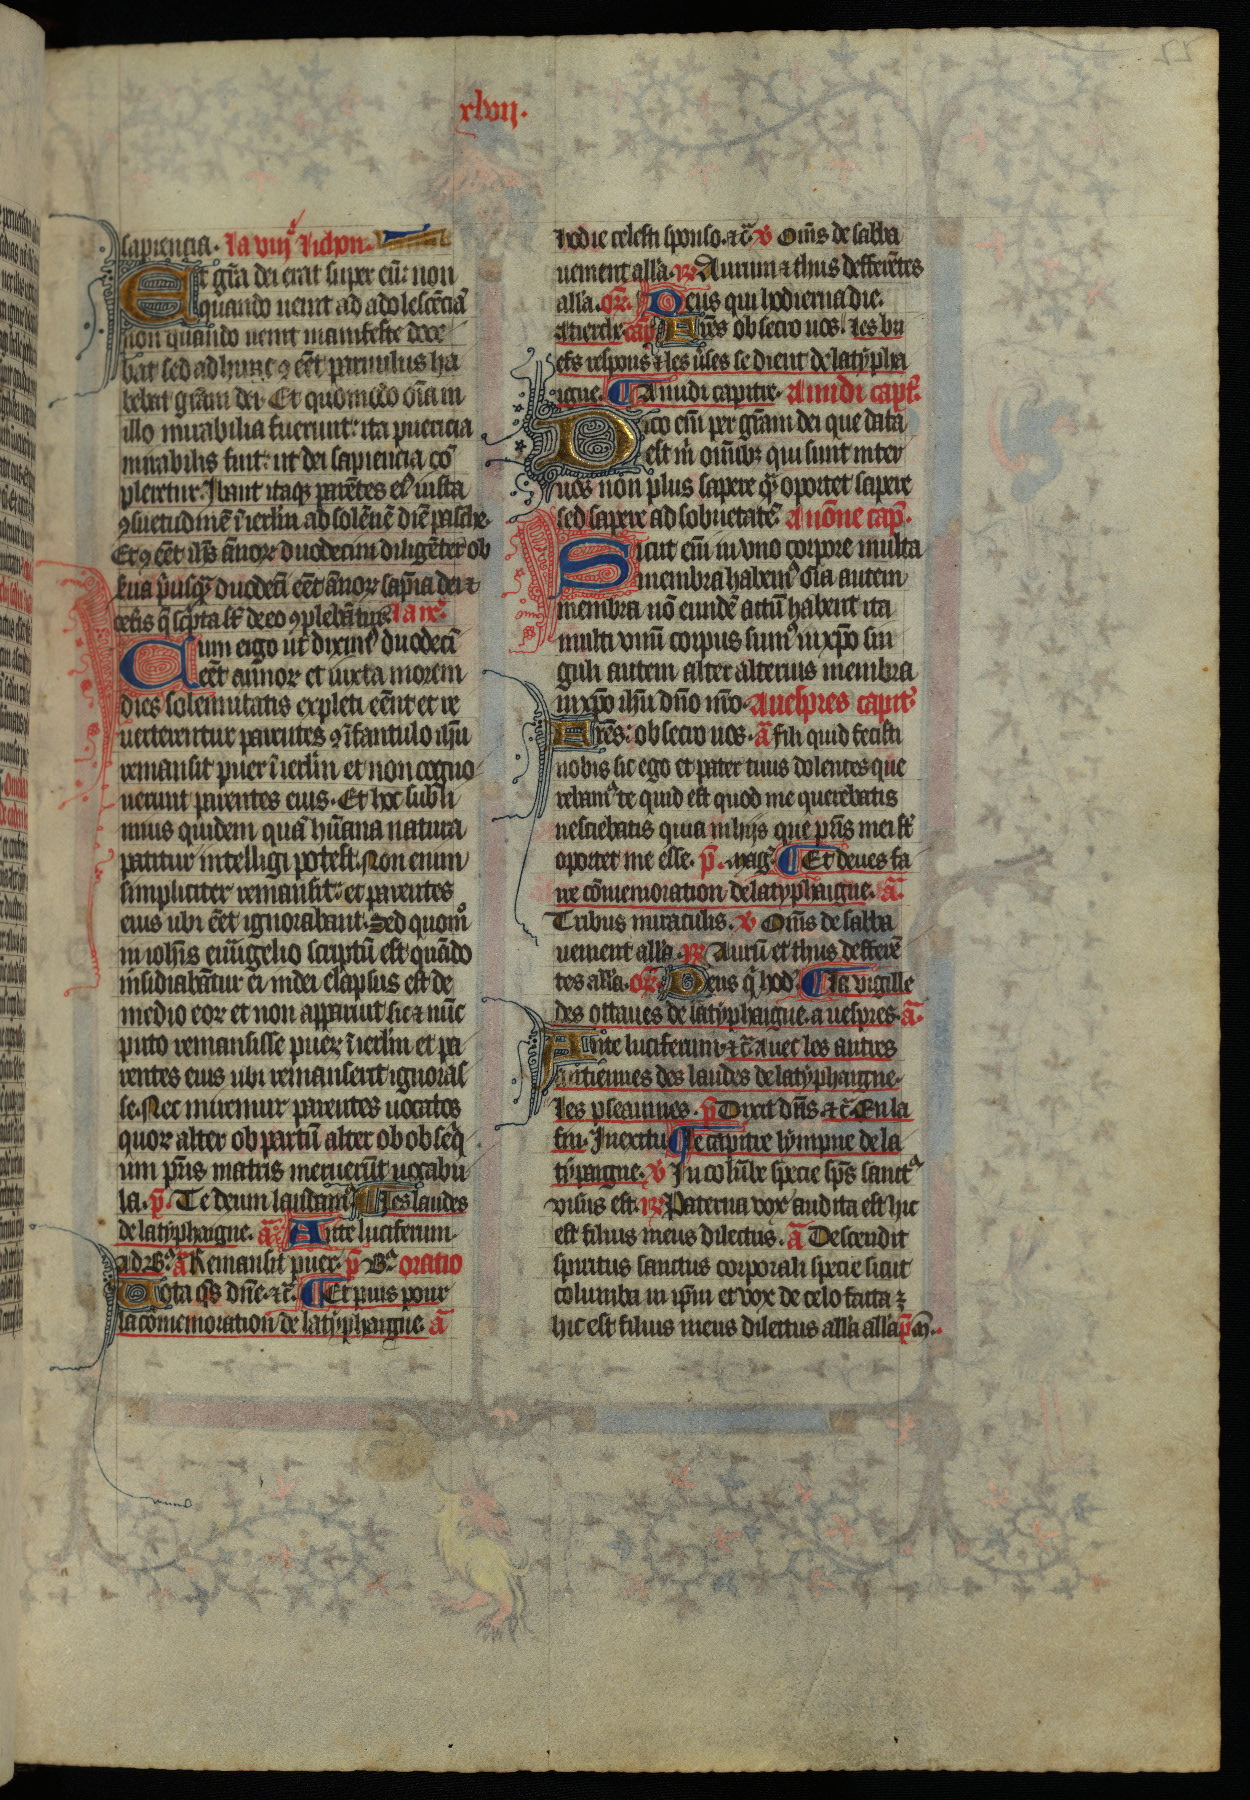 xlvii.
sapiencia. la viijᵉ lichon.
Et gr̄a dei erat super eū: non
quando uenit ad adolescēciā
non quando uenit manifeste doce
bat sed ad hunc ꝯ eēt paruulus ha
bebat grām dei. Et quomō oīa in
illo mirabilia fuerunt: ita puericia
mirabilis fuit: ut dei sapiencia cō
pleretur. Ibant itaqꝫ parētes eiꝰ iuxta
ꝯsuetudinē ī ierlm̄ ad solēnē diē pasche.
Et ꝯ eēt ih̄s ānoꝝ duodecim diligēter ob
la ixᵉ.
Cum ergo ut diximꝰ duodeci
eēt annoꝝ et iuxta morem
dies solennitatis expleti eēnt et re
uerterentur parentes ꝯ īfantulo ih̄u
remansit puer ī ierlm̄ et non cogno
uerunt parentes eius. Et hoc subli
mius quidem quā hūana natura
patitur intelligi potest. Non enim
simpliciter remansit: et parentes
eius ubi eēt ignorabant. Sed quomō
in ioh̄is euūgelio scriptū est quādo
insidiabātur ei iudei elapsus est de
medio eoꝝ et non apparuit sic ⁊ nūc
puto remansisse pueꝝ ī ierlm̄ et pa
rentes eius ubi remanserit ignoras
se. Nec miremur parentes uocatos
quoꝝ alter ob partū alter ob obseq̄
um pr̄is matris meruerūt uocabu
la. p̄. Te deum laudamꝰ Les laudes
de latyphaigne. ā. Ante luciferum.
ad Bᵃ. ā Remansit puer. p̄ Bᵃ. oratio
Uota qs̄ dn̄e. ⁊c̄. Et puis pour
la comemoration de latyphaigne. ā
hodie celesti sponso. ⁊c̄. v̄ Om̄s de sabba
uenient all'a. r̄ Aurum ⁊ thus defferētes
all'a. or̄. Deus qui hodierna die.
A tierche cap̄ Fr̄es obsecro uos. les bri
efs respons ⁊ les v̄ses se dient de latypha
igne. A midi capitre. A midi capt.
Dico em̄ per grām dei que data
est m̄ om̄ibꝫ qui sunt inter
uos non plus sapere q̄ꝫ oportet sapere
sed sapere ad sobrietatē. A nōne cap̄.
Sicut em̄ in uno corpore multa
membra habemꝰ oīa autem
membra nō eundē actū habent ita
multi unū corpus sumꝰ in xp̄o sin
guli autem alter alterius membra
in xp̄o ih̄u dn̄o nr̄o. A uespres capit̄
Fr̄es: obsecro uos. ā Fili quid fecisti
nobis sic ego et pater tuus dolentes que
rebamꝰ te quid est quod me querebatis
nesciebatis quia in hijs que pr̄is mei st̄
oportet me esse. p̄. maḡ. Et deues fa
ire cōmemoration de latyphaigne. ā.
Tribus miraculis. v̄ Om̄s de sabba
uenient all'a. r̄ Aurū et thus defferē
tes all'a. or̄. Deus q̄ hod̄. La vigille
des ottaues de latyphaigne. a uespres. ā.
Ante luciferum. ⁊c̄. Auec les autres
antiennes des laudes de latyphaigne.
Les pseaumes. p̄ Dixit dn̄s ⁊c̄. En la
fin. In exitu Le capitre lympne de la
typaigne. v̄ In colūbe specie sp̄s sanctꝰ
uisus est. r̄ Paterna uox audita est hic
est filius meus dilectus. ā Descendit
spiritus sanctus corporali specie sicut
columba in ip̄m et uox de celo facta ⁊
hic est filius meus dilectus all'a all'a p̄ m̄.